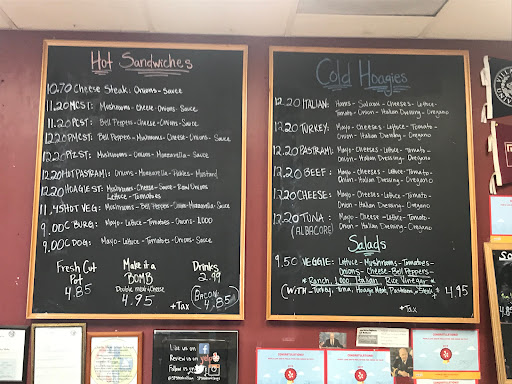 Hot Sandwiches
10.70 Cheese Steak: Onions-Sauce
11.20 MCST: Mushrooms-Cheese-Onions-Sauce
11.20 PCST: Bell Peppers-Cheese-Onions-Sauce
12.20 PMCST: Bell Peppers-Mushrooms-Cheese-Onions-Sauce
12.20 PIZST: Mushrooms-Onions-Monzarella-Sauce
12.20 HOT PASTRAMI: Onions-Monzarella-Pickles-Mustard
12.20 HOAGIEST: Mushrooms-Cheese-Sauce-Raw Onions
Lettuce-Tomatoes
11.45 HOT VEG: Mushrooms-Bell Peppers-Onion-Monzarella-Sauce
9.00 C BURG: Mayo-Lettuce-Tomatoes-Onions-1,000
9.00 C DOG: Mayo-Lettuce-Tomatoes-Onions-Sauce
Fresh Cut
Pot
4.85
Make it a
BOMB
Double meat & cheese
4.95
Drinks
2.99
(Bacon
4.85)
+Tax
Cold Hoagies
12.20 ITALIAN: Hams-Salami-Cheeses-Lettuce-
Tomatoes-Onion-Italian Dressing-Oregano
12.20 TURKEY: Mayo-Cheeses-Lettuce-Tomato-
Onion-Italian Dressing-Oregano
12.20 PASTRAMI: Mayo-Cheeses-Lettuce-Tomato-
Onion-Italian Dressing-Oregano
12.20 BEEF: Mayo-Cheeses-Lettuce-Tomato-
Onion-Italian Dressing-Oregano
12.20 CHEESE: Mayo-Cheeses-Lettuce-Tomato-
Onion-Italian Dressing-Oregano
12.20 TUNA: Mayo-Cheeses-Lettuce-Tomato-
(ALBACORE) Onion-Italian Dressing-Oregano
Salads
9.50 VEGGIE: Lettuce-Mushrooms-Tomatoes-
Onions-Cheese-Bell Peppers-
* Ranch, 1,000 Italian, Rice Vinegar *
(WITH-Turkey, Tuna, Hoagie Meat, Pastrami, Steak) 4.95
+Tax
Like us on
Review us on
Follow us on